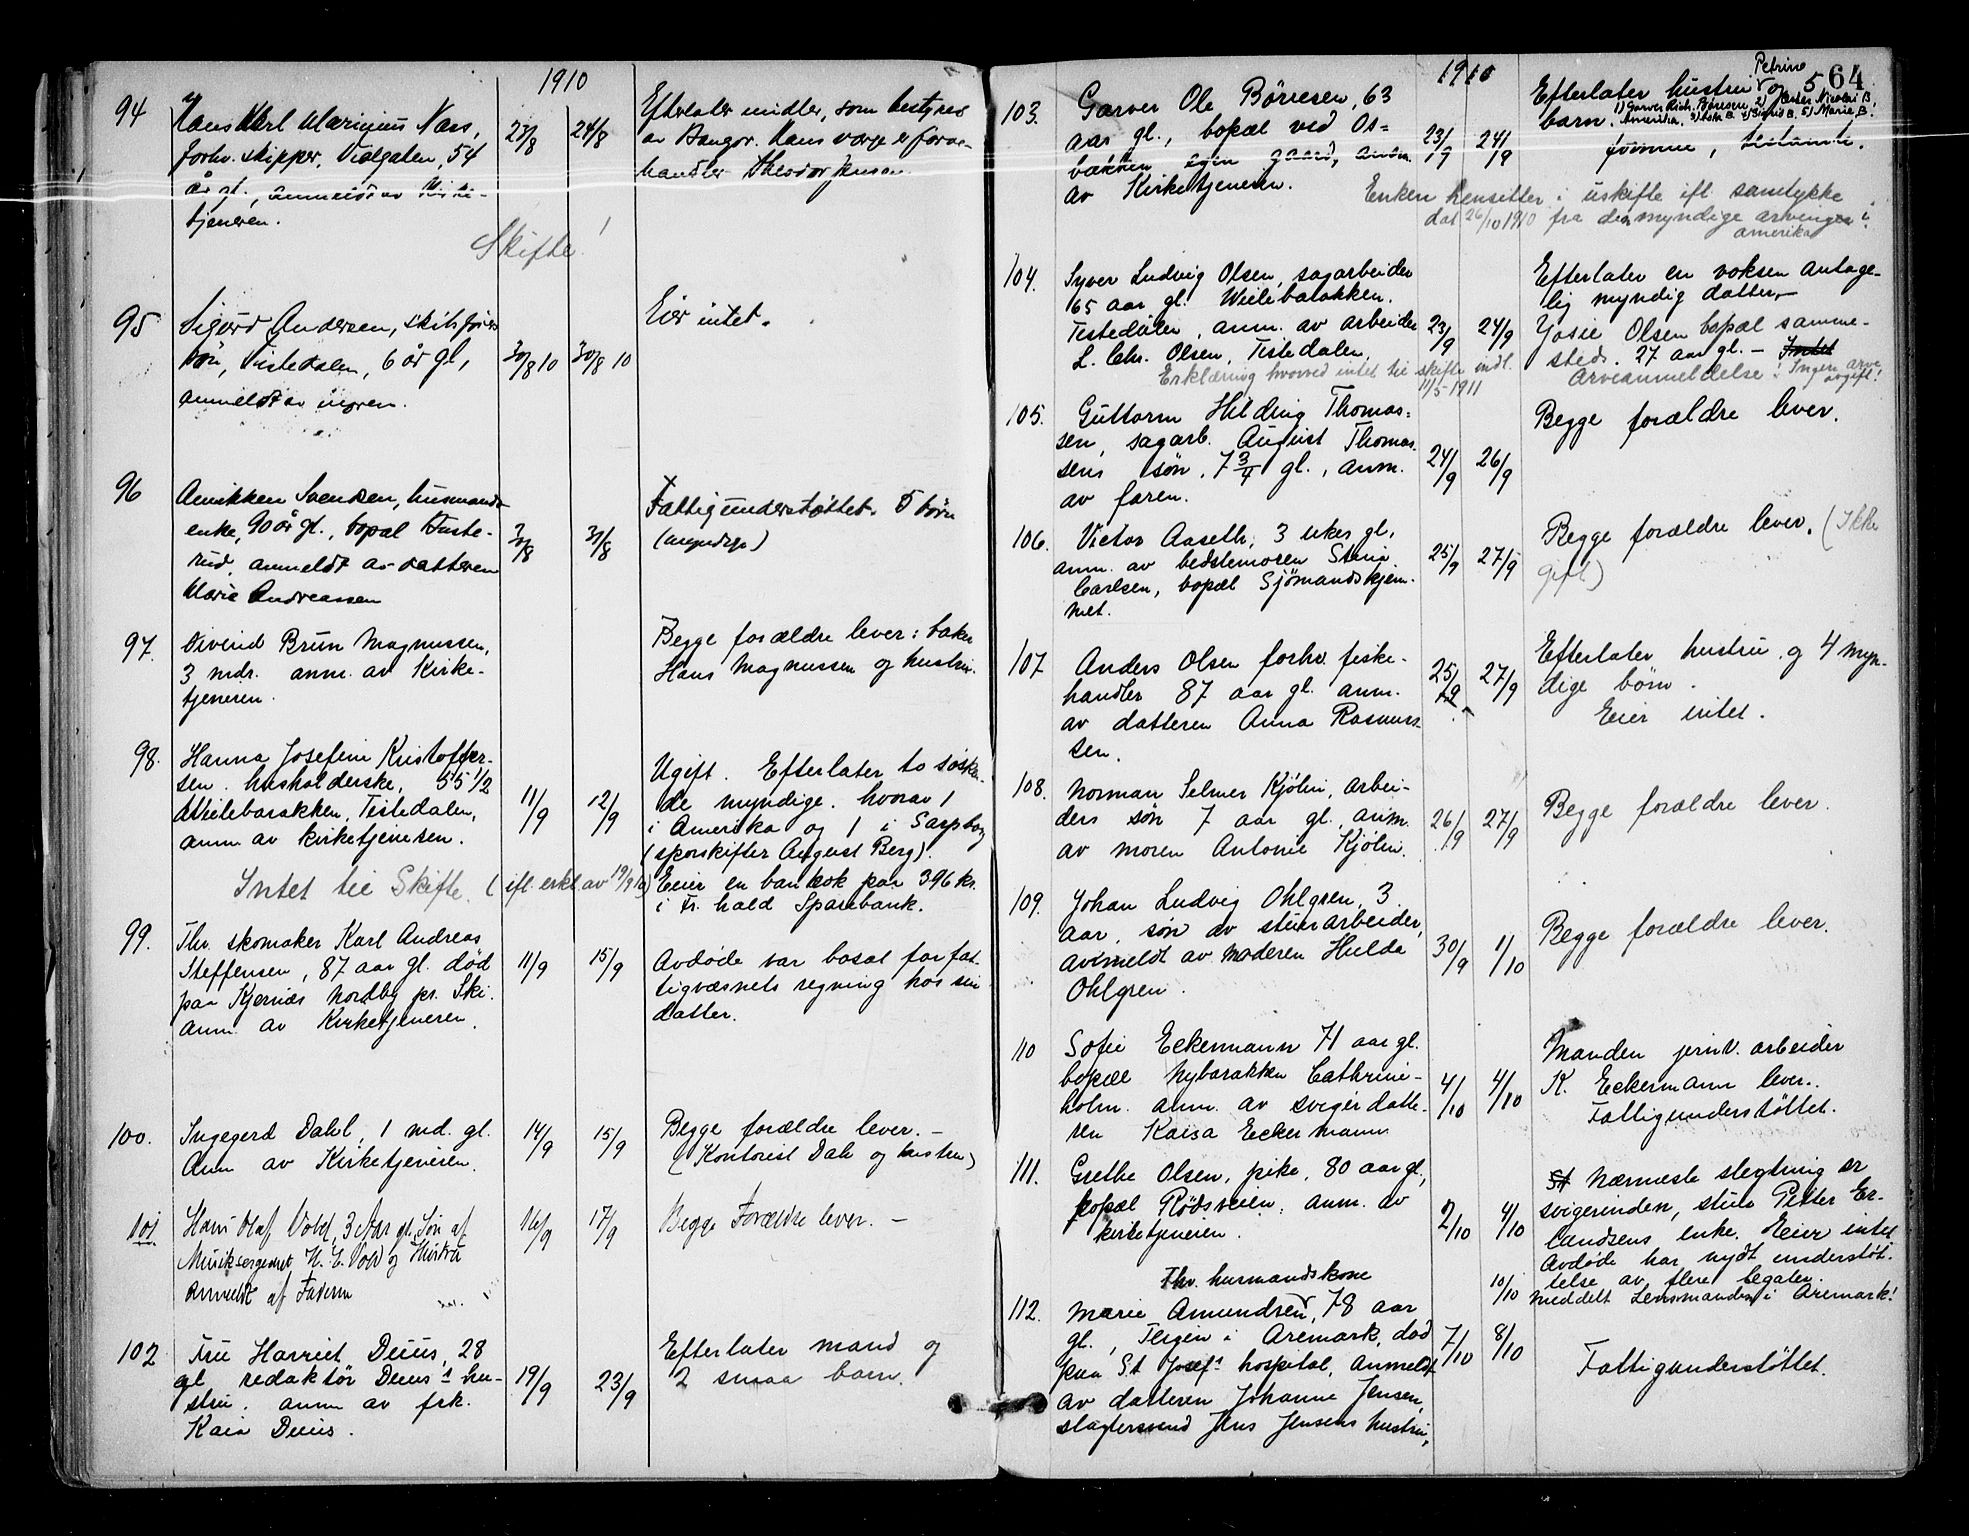 1910
94 Hans Karl Marinius Næss,
forhv. skipper, Vedgaten, 54
år gl., anmeldt av Kirke-
tjeneren.
23/8 24/8
Efterlater midler, som bestyres
av Hans verge er farve-
handler Theodor Jensen
Skifte!
95 Sigurd Andersen, skibsførers
søn, Tistedalen, 6 år gl,
anmeldt av moren.
30/8 10 30/8 10
Eier intet.
96 Annikken Svendsen, husmands
enke, 90 år gl., bopæl
anmeldt av datteren
Marie Andreassen
30/8 31/8
Fattigunderstøttet. 5 børn
(myndige)
97. Eivind Brun Magnussen,
3 mdr. anm. av Kirke-
tjeneren.
Begge forældre lever: baker
Hans Magnussen og hustru.
98. Hanna Josefine Kristoffer-
sen. husholderske, 55 1/2
Wielebarakken, Tistedalen,
anm av kirketjeneren.
11/9 12/9
Ugift. Efterlater to søsken-
de myndige. hvorav 1
i Amerika og 1 i Sarpsborg
(sporskifter August Berg).
Eier en bankbok paa 396 kr.
i Fr. hald Sparebank.
Intet til Skifte. (ifl erkl av 19/9 10)
99. Fhv. skomaker Karl Andreas
Steffensen, 87 aar gl. død
paa Kjernæs Nordby pr. Ski.
anm. av Kirketjeneren.
11/9 15/9
Avdøde var bosat for fat-
tigvæsnets regning hos sin
datter.
100. Ingegerd Dahl, 1 md. gl.
Anm av Kirketjeneren.
14/9 15/9
Begge forældre lever. —
(Kontorist Dahl og hustru)
101 Hans Olaf Vold, 3 Aar gl. Søn af
Musiksergeant H. E. Vold og Hustru
Anmeldt af Faderen
16/9 17/9
Begge Forældre lever. —
102 Fru Harriet Duus, 28
gl redaktør Duus's hu-
stru. anm av frk.
Kaia Duus.
19/9 23/9
Efterlater mand og
2 smaa barn.
1910
564
103. Garver Ole Børresen, 63
aar gl., bopæl ved Os-
bækken egen gaard, anm.
av Kirketjeneren.
23/9 24/9
Petrine
Efterlater hustru og 5
barn. 1) Garver Rich. Børresen, 2) Peder Nicolai B.
Amerika. 3) Asta B. 4) Sigrid B. 5) Marie B.
formue, testamente.
Enken hensitter i uskifte ifl samtykke
dat 26/10 1910 fra den myndige arvingen i
Amerika.
104. Syver Ludvig Olsen, sagarbeider
65 aar gl. Wielebarakken.
Tistedalen, anm. av arbeider
L. Chr. Olsen, Tistedalen,
23/9 24/9
Efterlater en voksen antage-
lig myndig datter,—
Josie Olsen bopæl samme-
steds. 27 aar gl. — Intet
Arveanmeldelse! Ingen arve
avgift!
Erklæring hvorved intet til skifte indl.
11/5 1911
105. Guttorm Hilding Thomas-
sen, sagarb. August Thomas
sens søn, 7 3/4 gl., anm.
av faren.
24/9 26/9
Begge forældre lever.
106. Victor Aaseth, 3 uker gl,
anm. av bedstemoren Stina
Carlsen, bopæl Sjømandshjem-
met.
25/9 27/9
Begge forældre lever. (Ikke
gift)
107 Anders Olsen forhv. fiske-
handler 87 aar gl. anm.
av datteren Anna Rasmus-
sen.
25/9 27/9
Efterlater hustru og 4 myn-
dige børn.
Eier intet.
108. Norman Selmer Kjølen, arbei-
ders søn 7 aar gl. anm.
av moren Antonie Kjølen.
26/9 27/9
Begge forældre lever.
109. Johan Ludvig Ohlgren, 3
aar, søn av stuerarbeider,
anmeldt av moderen Hulda
Ohlgren.
30/9 1/10
Begge forældre lever.
110 Sofie Eckermann 71 aar gl.
bopæl Nybarakken Cathrine-
holm. anm. av svigerdatte-
ren Kaisa Eckermann
4/10 4/10
Manden jernv. arbeider
K. Eckermann lever.
Fattigunderstøttet.
111. Grethe Olsen, pike, 80 aar gl,
bopæl Rødsveien, anm. av
kirketjeneren.
2/10 4/10
St Nærmeste slegtning er
svigerinden, stuer Petter Er-
landsens enke. Eier intet
Avdøde har nydt understøt-
telse av flere legater.
10/10 meddelt Lensmanden i Aremark!
Fhv. husmandskone
112. Marie Amundsen, 78 aar
gl., i Aremark, død
paa St. Josefs hospital, Anmeldt
av datteren Johanne Jensen,
slagtersvend Jens Jensens hustru,
7/10 8/10
Fattigunderstøttet.